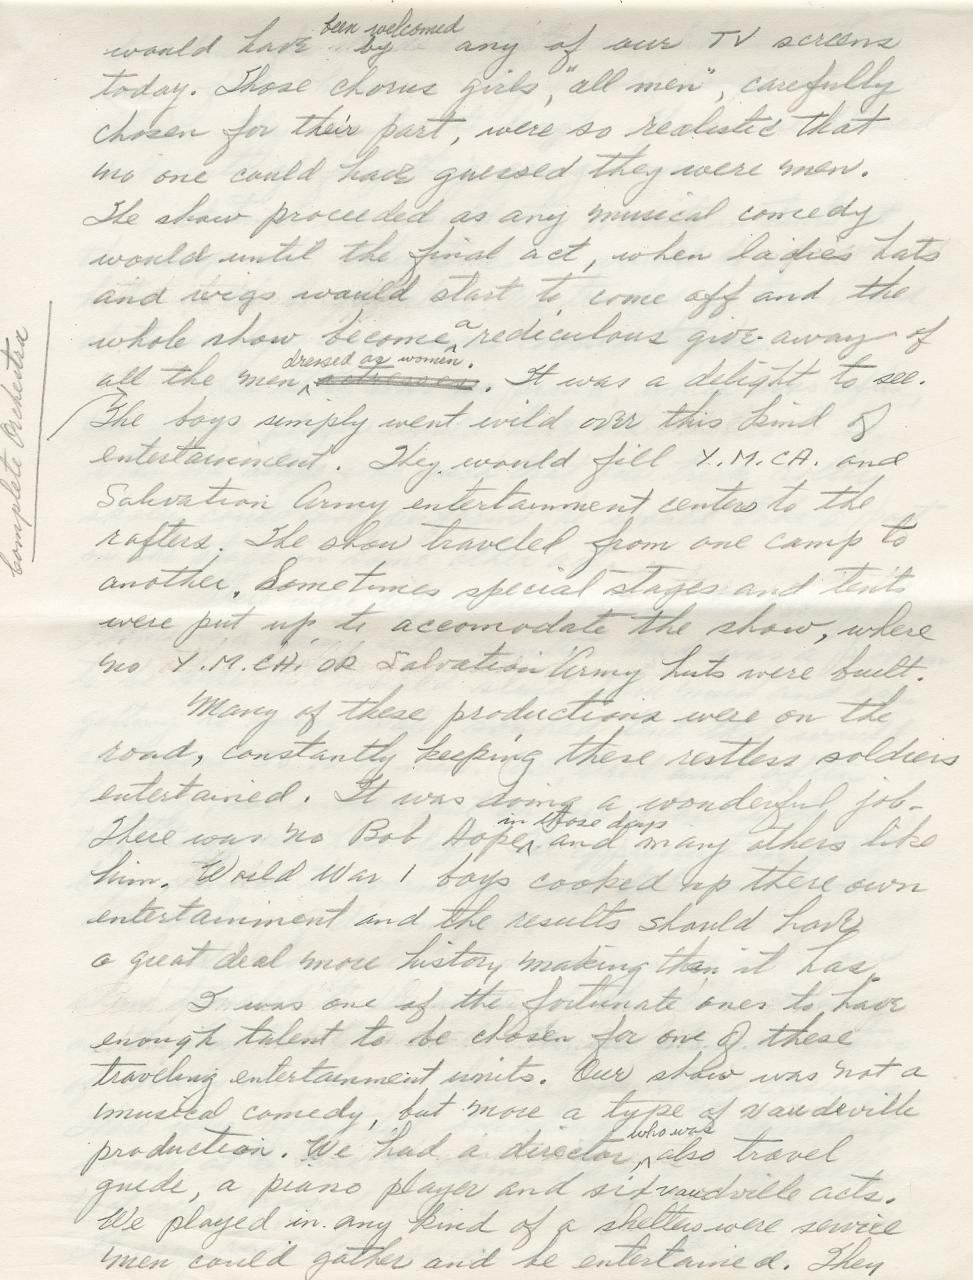 been welcomed
would have by any of our TV screens
today. Those chorus girls, "all men", carefully
chosen for their part, were so realistic that
no one could have guessed they were men.
The show proceeded as any musical comedy
would until the final act, when ladies hats
and wigs would start to come off and the
whole show become a rediculous give-away of
dressed as women.
all the men actresses. It was a delight to see.
Complete Orchestra
The boys simply went wild over this kind of
entertainment. They would fill Y.M.CA. and
Salvation Army entertainment centers to the
rafters. The show traveled from one camp to
another. Sometimes special stages and tents
were put up to accomodate the show, where
no Y.M.CA. or Salvation Army huts were built.
Many of these productions were on the
road, constantly keeping these restless soldiers
entertained. It was doing a wonderful job.
in those days
There was no Bob Hope, and many others like
him. World War 1 boys cooked up there own
entertainment and the results should have
a great deal more history making than it has.
I was one of the fortunate ones to have
enough talent to be chosen for one of these
traveling entertainment units. Our show was not a
musical comedy, but more a type of vaudeville
who was
production. We had a director, also travel
guide, a piano player and six vaudville acts.
We played in any kind of a shelter were service
men could gather and be entertained. They